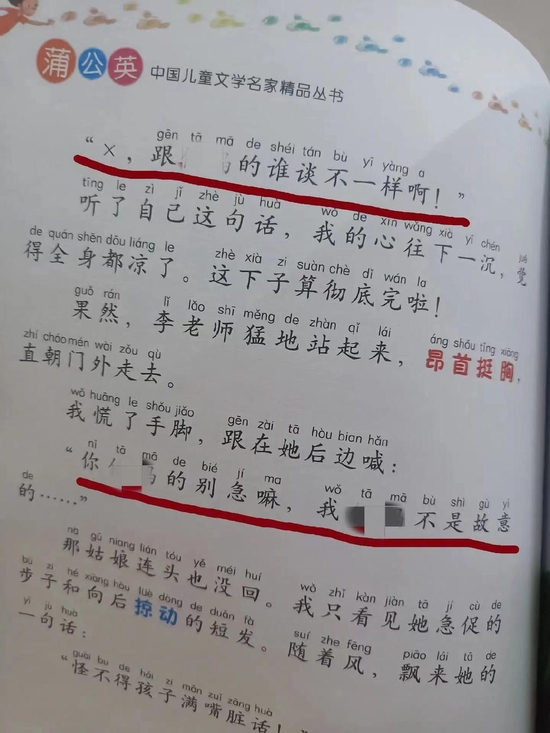 蒲公英 中国儿童文学名家精品丛书
gēn tā mā de shéi tán bù yī yàng a
“×，跟的谁谈不一样啊！”
tīng le zì jǐ zhè jù huà wǒ de xīn wǎng xià yī chén
听了自己这句话，我的心往下一沉，觉
de quán shēn dōu liáng le zhè xià zi suàn chè dǐ wán la
得全身都凉了。这下子算彻底完啦！
guǒ rán lǐ lǎo shī měng de zhàn qǐ lái áng shǒu tǐng xiōng
果然，李老师猛地站起来，昂首挺胸，
zhí cháo mén wài zǒu qù
直朝门外走去。
wǒ huāng le shǒu jiǎo gēn zài tā hòu bian hǎn
我慌了手脚，跟在她后边喊：
nǐ tā mā de bié jí ma wǒ tā mā bù shì gù yì
“你的别急嘛，我不是故意
de
的……”
nà gū niang lián tóu yě méi huí wǒ zhǐ kàn jiàn tā jí cù de
那姑娘连头也没回。我只看见她急促的
bù zi hé xiàng hòu lüè dòng de duǎn fà suí zhe fēng piāo lái tā de
步子和向后掠动的短发。随着风，飘来她的
yī jù huà
一句话：
guài bu de hái zi mǎn zuǐ zāng huà
“怪不得孩子满嘴脏话！